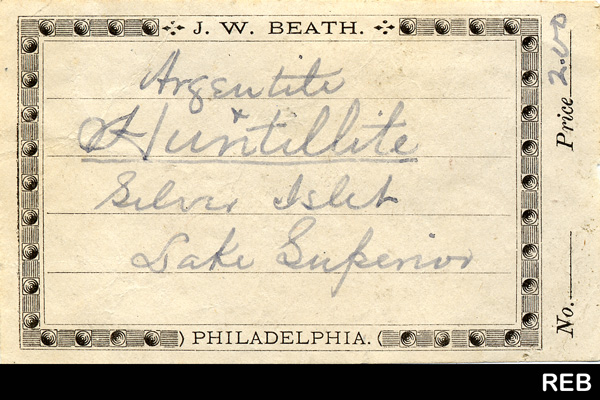 J. W. BEATH.
Argentite
x
Huntillite
Silver Islet
Lake Superior
PHILADELPHIA.
Price 2.00
No.
REB